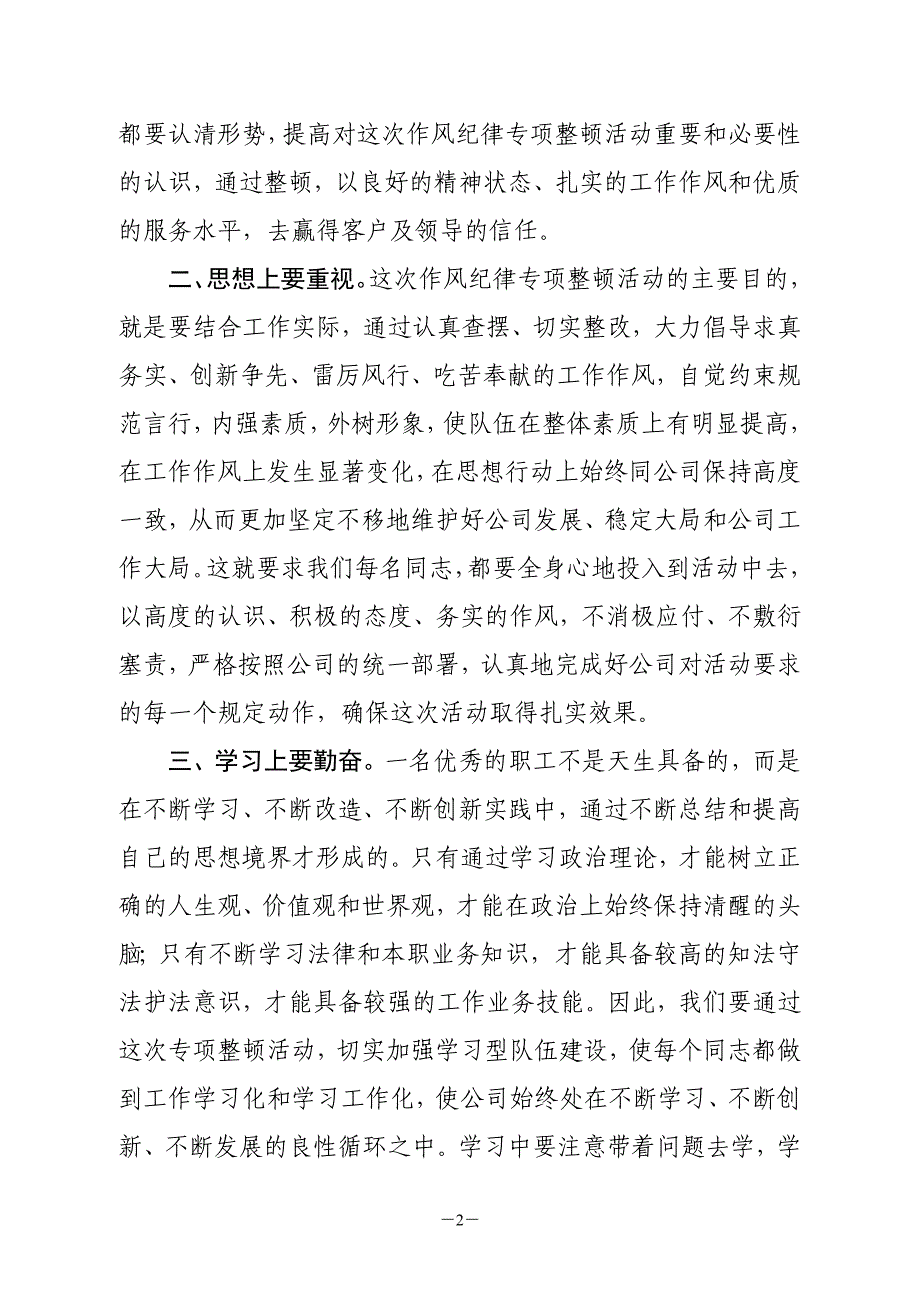 都要认清形势，提高对这次作风纪律专项整顿活动重要和必要性
的认识，通过整顿，以良好的精神状态、扎实的工作作风和优质
的服务水平，去赢得客户及领导的信任。
二、思想上要重视。这次作风纪律专项整顿活动的主要目的，
就是要结合工作实际，通过认真查摆、切实整改，大力倡导求真
务实、创新争先、雷厉风行、吃苦奉献的工作作风，自觉约束规
范言行，内强素质，外树形象，使队伍在整体素质上有明显提高，
在工作作风上发生显著变化，在思想行动上始终同公司保持高度
一致，从而更加坚定不移地维护好公司发展、稳定大局和公司工
作大局。这就要求我们每名同志，都要全身心地投入到活动中去，
以高度的认识、积极的态度、务实的作风，不消极应付、不敷衍
塞责，严格按照公司的统一部署，认真地完成好公司对活动要求
的每一个规定动作，确保这次活动取得扎实效果。
三、学习上要勤奋。一名优秀的职工不是天生具备的，而是
在不断学习、不断改造、不断创新实践中，通过不断总结和提高
自己的思想境界才形成的。只有通过学习政治理论，才能树立正
确的人生观、价值观和世界观，才能在政治上始终保持清醒的头
脑；只有不断学习法律和本职业务知识，才能具备较高的知法守
法护法意识，才能具备较强的工作业务技能。因此，我们要通过
这次专项整顿活动，切实加强学习型队伍建设，使每个同志都做
到工作学习化和学习工作化，使公司始终处在不断学习、不断创
新、不断发展的良性循环之中。学习中要注意带着问题去学，学
－2－